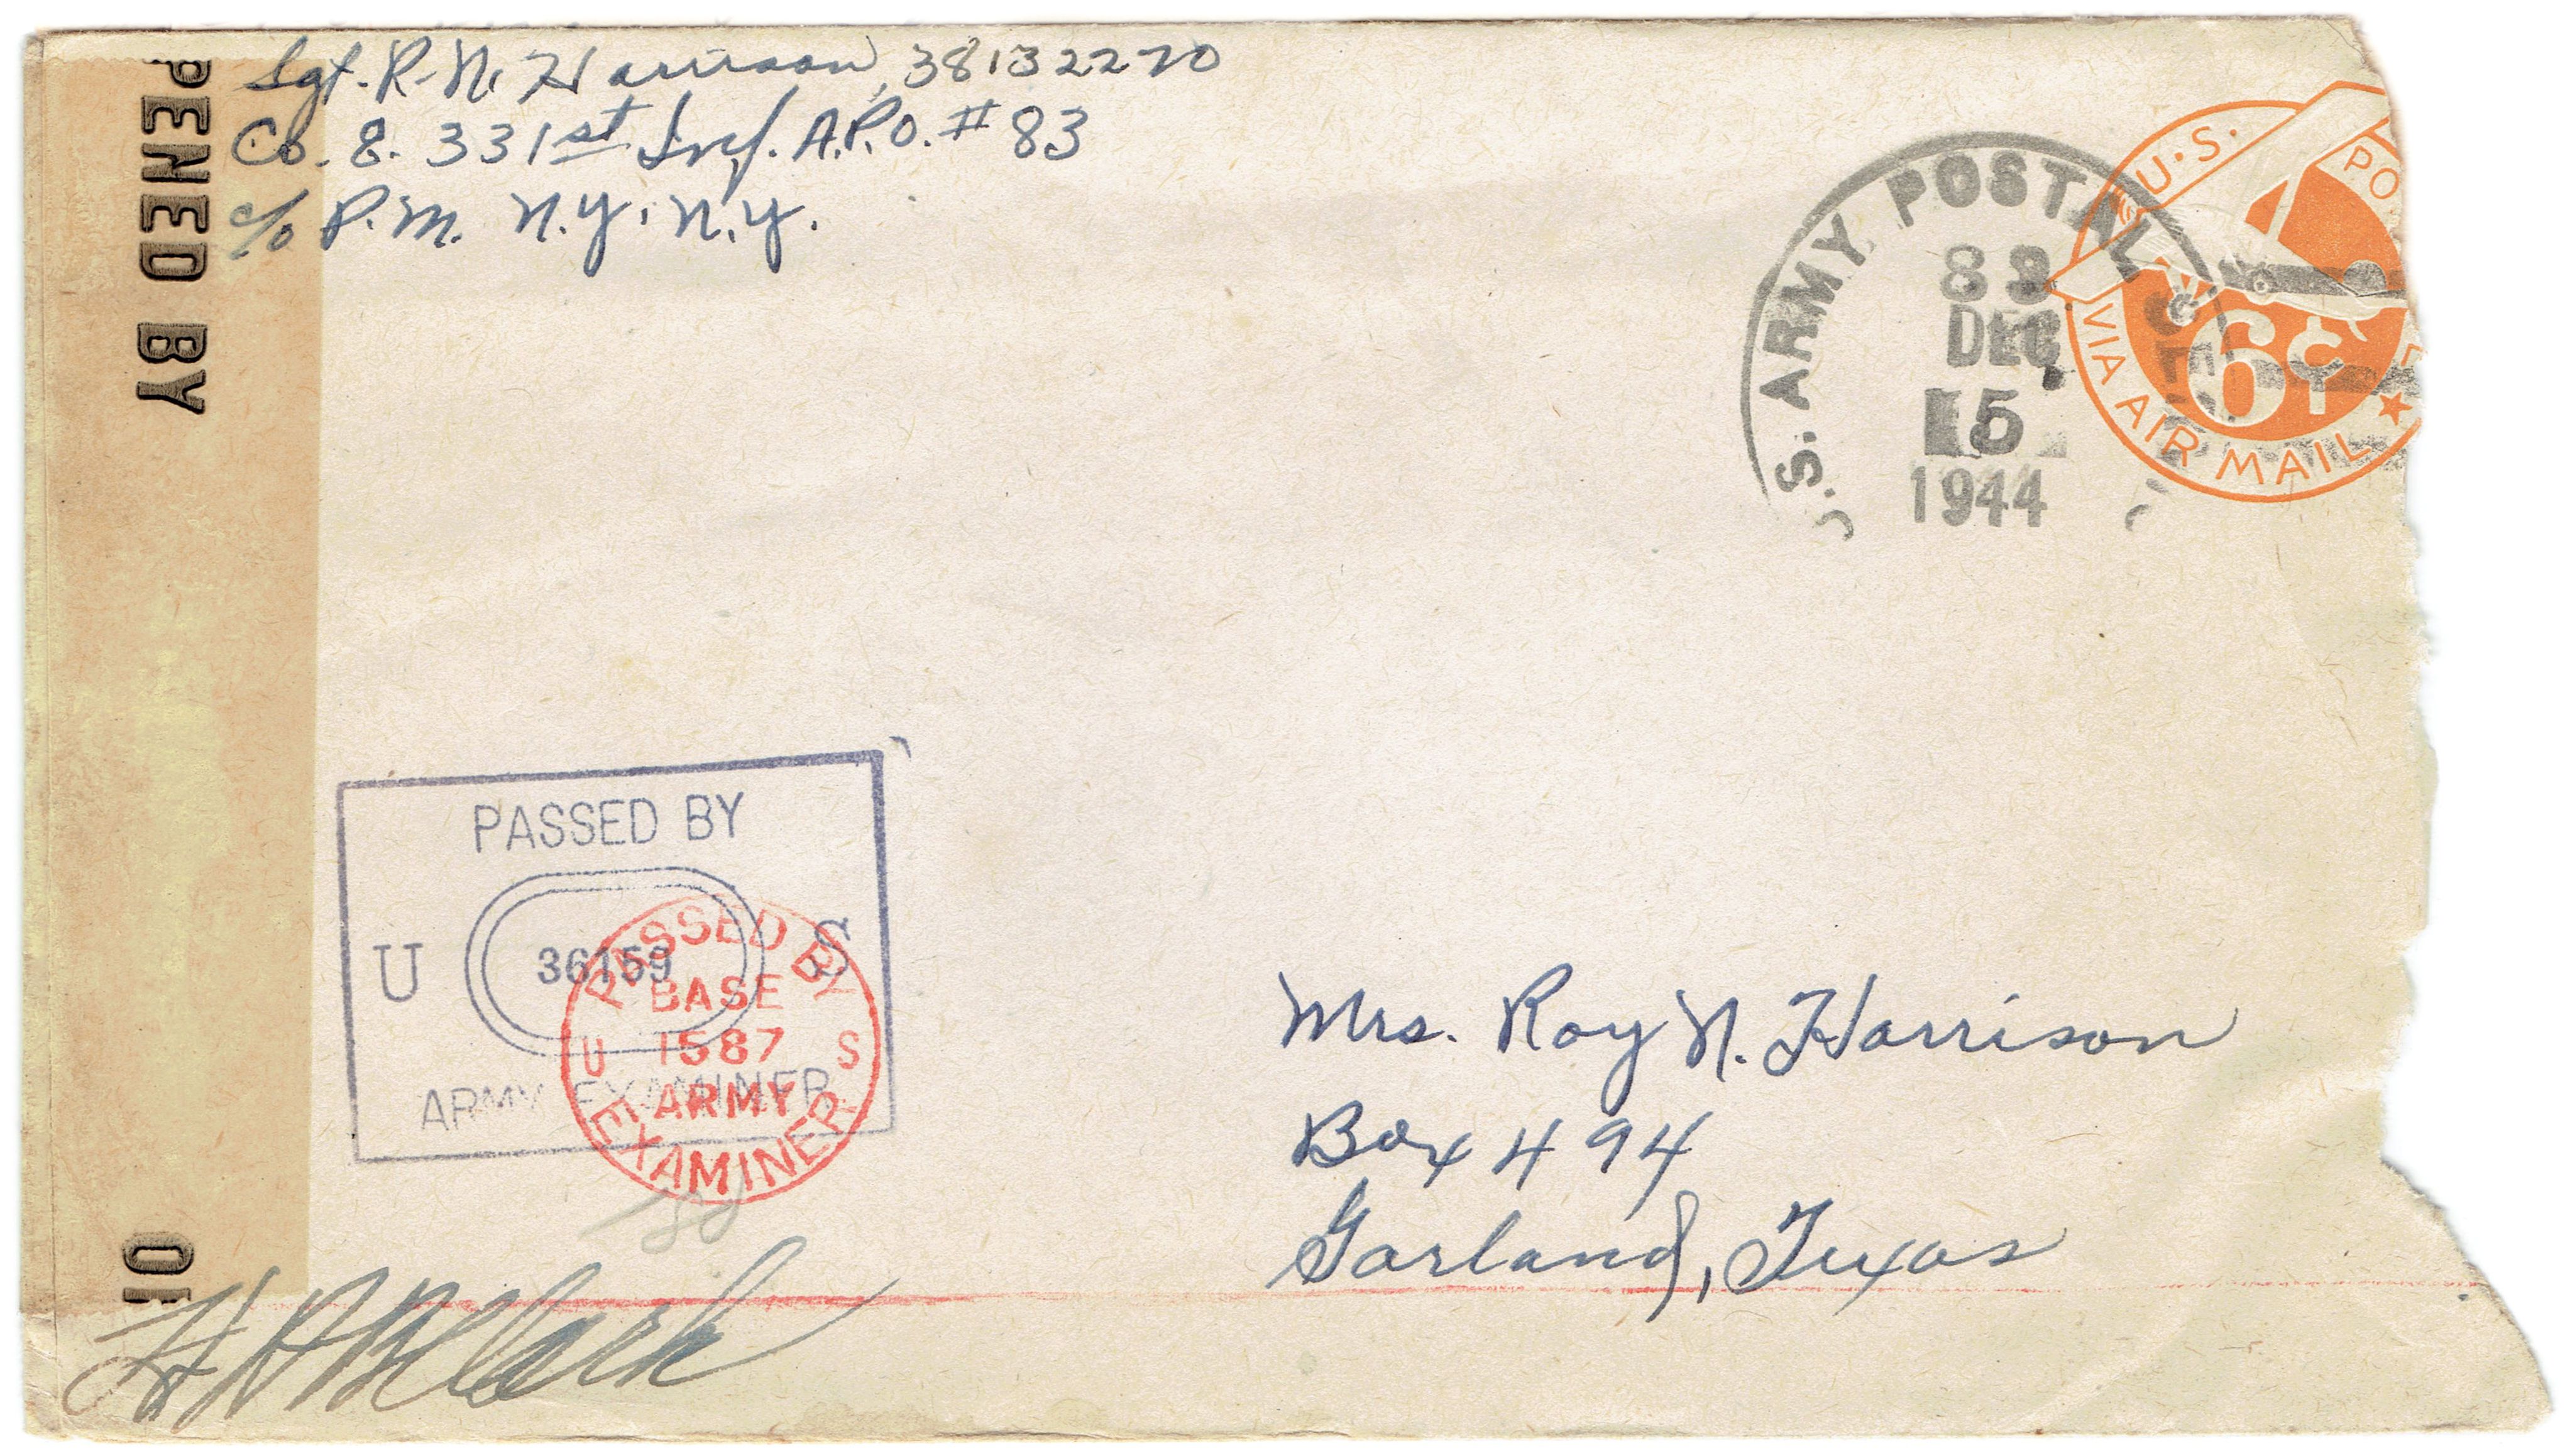 Sgt. R. N. Harrison, 38132270
Co. E. 331st Inf. A.P.O. # 83
c/o P.M. N.Y. N.Y.
PENED BY
U.S. ARMY POSTAL
DEC
5
1944
U.S. PO
6¢
VIA AIR MAIL
PASSED BY
U 36159 S
ARMY EXAMINER
PASSED BY
BASE
U 1587 S
ARMY
EXAMINER
Mrs. Roy N. Harrison
Box 494
Garland, Texas